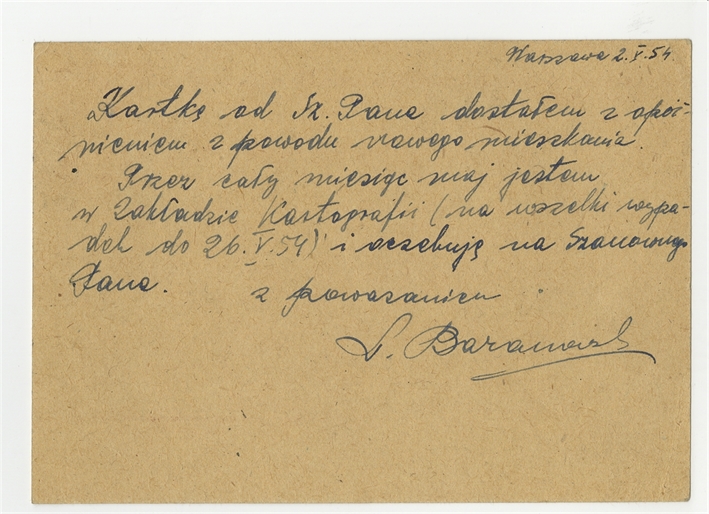 Warszawa 2.V.54.
Kartkę od Sz. Pana dostałem z opóź-
nieniem z powodu nowego mieszkania.
Przez cały miesiąc maj jestem
w Zakładzie Kartografii (na wszelki wypa-
dek do 26.V.54) i oczekuję na Szanownego
Pana.
z poważaniem
L. Baranowski